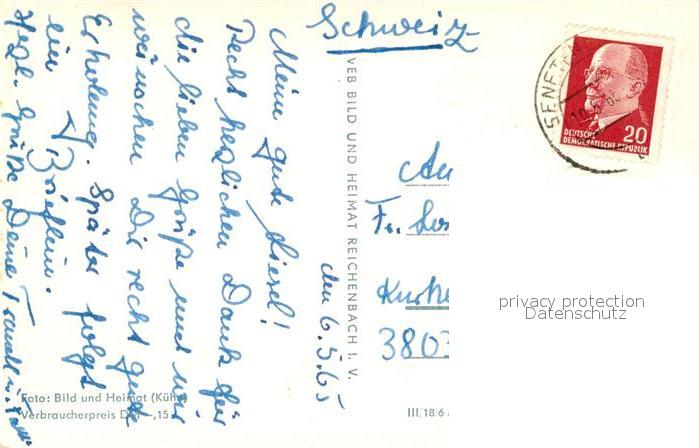 Schweiz
den 6.5.65
Meine gute Liesel!
Recht herzlichen Dank für
die lieben Grüße und wir
wünschen Dir recht gute
Erholung. Später folgt
ein Brieflein.
Herzl. Grüße Deine
An
Fr.
3803
VEB BILD UND HEIMAT REICHENBACH I. V.
Foto: Bild und Heimat
Verbraucherpreis
III/18/6
DEUTSCHE
DEMOKRATISCHE REPUBLIK
20
privacy protection
Datenschutz